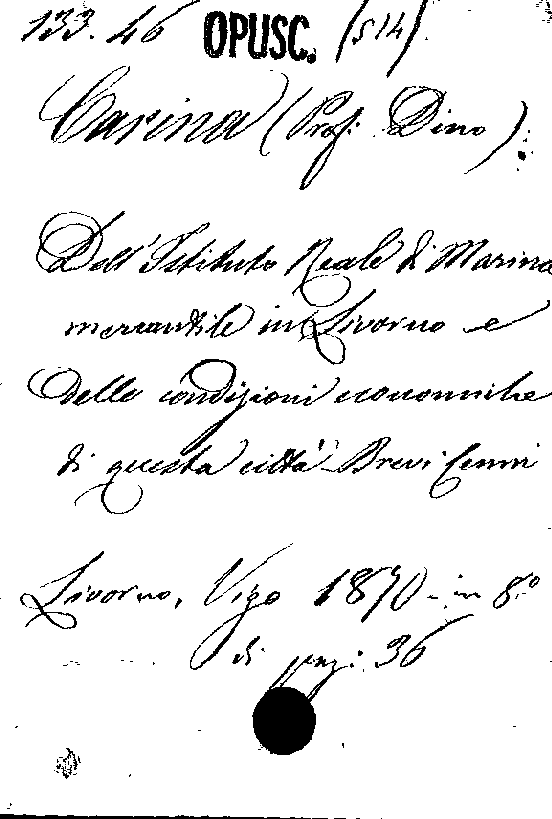 133. 46 OPUSC. (514).
Carina (Prof: Dino):
Dell'Istituto Reale di Marina
mercantile in Livorno e
delle condizioni economiche
di questa città Brevi Cenni
Livorno, Vigo 1870 - in 8.o
di pag: 36